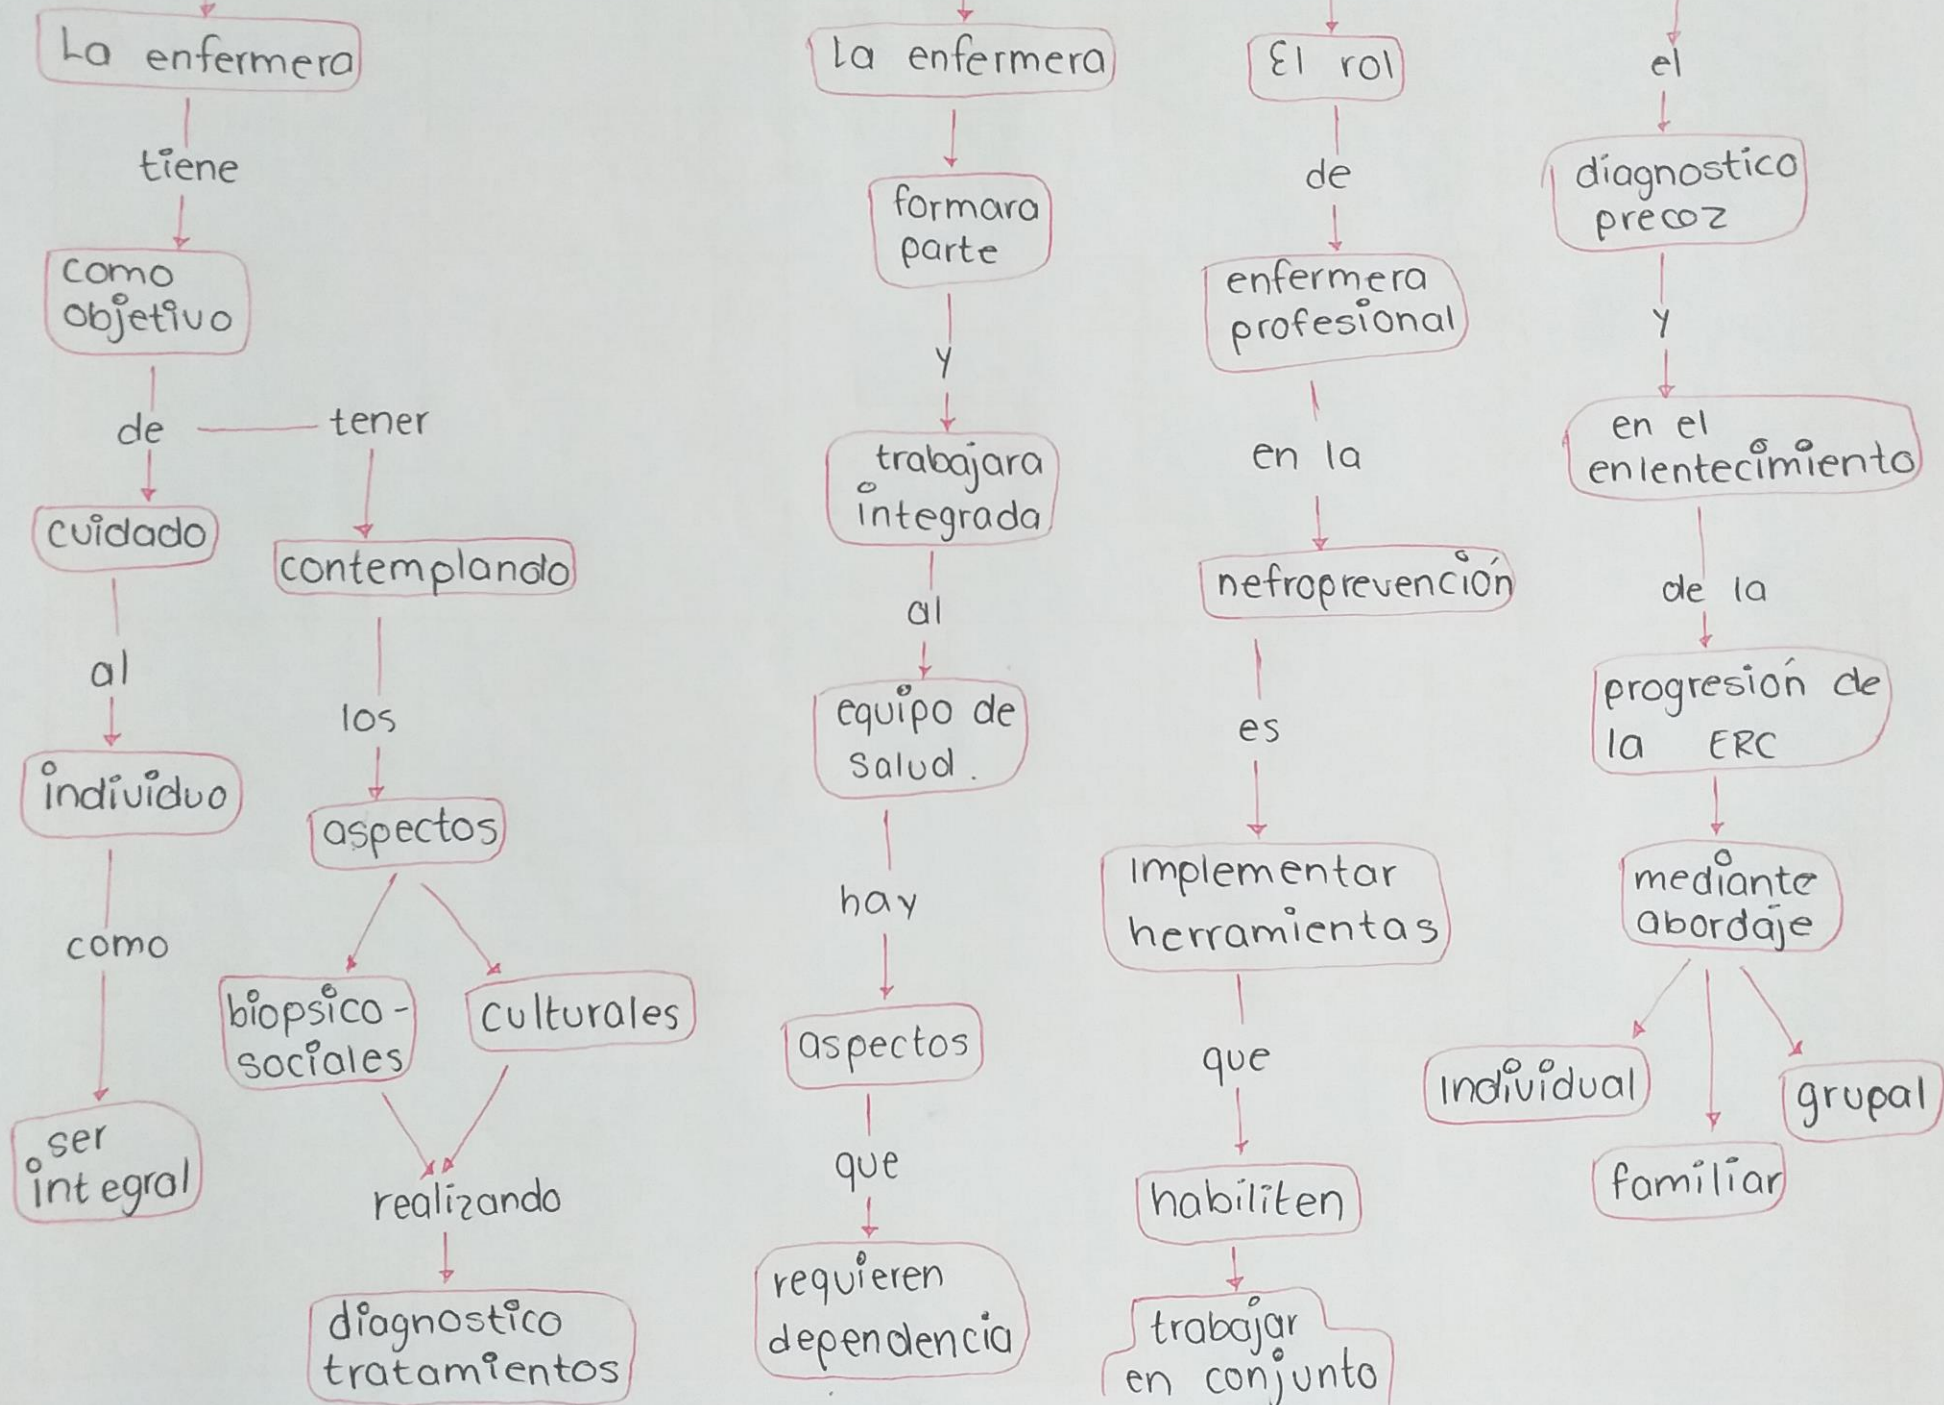 La enfermera
tiene
como
objetivo
de
tener
cuidado
contemplando
al
los
individuo
aspectos
como
biopsico-
sociales
culturales
ser
integral
realizando
diagnostico
tratamientos
la enfermera
formara
parte
y
trabajara
integrada
al
equipo de
salud.
hay
aspectos
que
requieren
dependencia
El rol
de
enfermera
profesional
en la
nefroprevención
es
Implementar
herramientas
que
habiliten
trabajar
en conjunto
el
diagnostico
precoz
y
en el
enlentecimiento
de la
progresión de
la ERC
mediante
abordaje
Individual
familiar
grupal